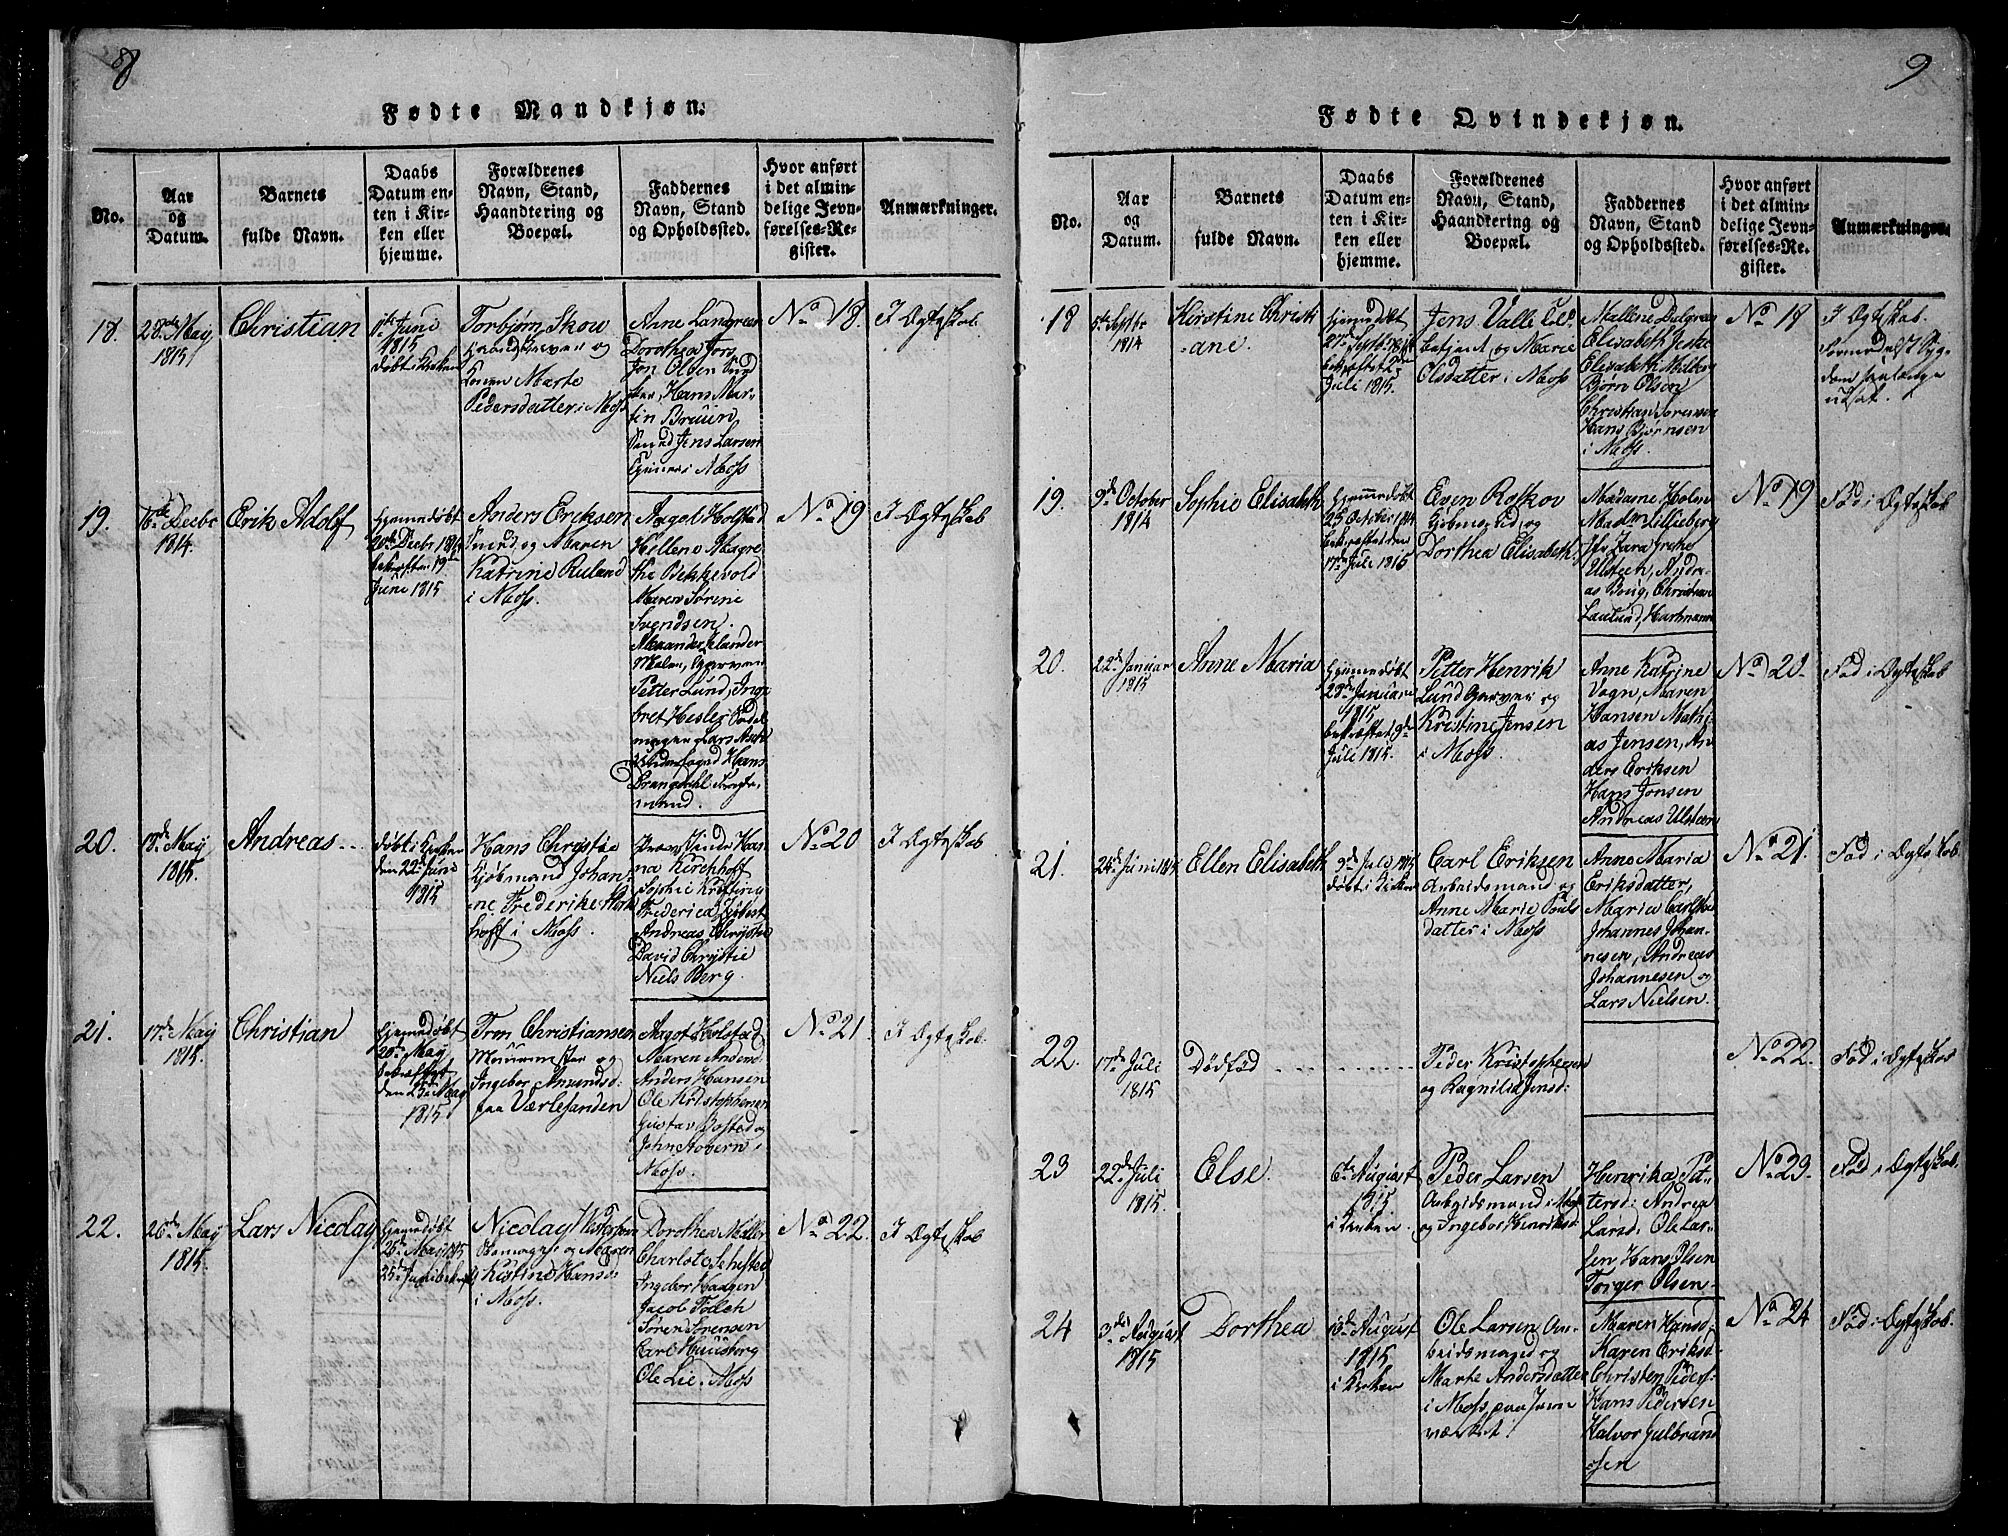 8
Fødte Mandkjøn.
No.
Aar
og
Datum.
Barnets
fulde Navn.
Daabs
Datum en-
ten i Kir-
ken eller
hjemme.
Forældrenes
Navn, Stand,
Haandtering og
Boepæl.
Faddernes
Navn, Stand
og Opholdssted.
Hvor anført
i det almin-
delige Jevn-
førelses-Re-
gister.
Anmærkninger.
18.
28de May
1815
Christian
Juni
1815
døbt i Kirken
Torbjørn Skou
og
Konen Marte
Pedersdatter i Moss
Anne Landgreen
Dorothea Jors
Jon Olsen
Hans Mar-
tin Bruun
Jens Larsen
i Moss
No 18.
I Ægteskab
19.
16de Decbr
1814.
Erik Adolf
Hjemmedøbt
20de Decbr 1814
19de
Juni 1815
Anders Eriksen
Smed og Maren
Katrine Ruland
i Moss.
Aagot Holstad
Hellene Magre-
the Bekkevold
Maren Sørine
Svendsen.
Alexander
Petter Lund, Ing-
bret Hesler
Lars
Hans
mand.
No 19
I Ægteskab
20.
18de May
1815
Andreas
døbt i Kirken
den 22de Juni
1815
Hans Chrystie
Kjøbmand Johan-
ne Frederike
hoff i Moss.
Han-
na Kirchhoff
Sophie
Frederica
Andreas Chrystie
David Chrystie
Niels Berg.
No 20
I Ægteskab
21.
17de May
1815.
Christian
Hjemmedøbt
20de May
den 25de May
1815.
Tron Christiansen
Muurmester og
Ingebor Amundsd:
paa Værlesanden
Aagot Holstad
Maren Andersd.
Anders Hansen
Ole Kristophersen
Gustav og
John
Moss.
No 21
I Ægteskab.
22.
26de May
1815.
Lars Nicolay
Hjemmedøbt
28de May 1815
25de Juni
Nicolay
og Maren
Kistine Hansd:
i Moss.
Dorothea Møller
Charlote Sehested
Ingebor Haagen
Jacob
Søren Sørensen
Carl Huusborg
Ole Lie. Moss
No 22.
I Ægteskab
9
Fødte Qvindekjøn.
No.
Aar
og
Datum.
Barnets
fulde Navn.
Daabs
Datum en-
ten i Kir-
ken eller
hjemme.
Forældrenes
Navn, Stand,
Haandtering og
Boepæl.
Faddernes
Navn, Stand
og Opholdssted.
Hvor anført
i det almin-
delige Jevn-
førelses-Re-
gister.
Anmærkninger.
18
5te Septbr
1814
Kirstine Christi
-ane.
Hjemmedøbt
21de Septbr 1814
bekræftet 2den
Juli 1815.
Jens Valle Tol-
betjent og Marie
Olsdatter i Moss
Mallene Dalgreen
Elisabeth
Elisabeth
Bjørn Olsen
Christian Sørensen
Hans Bjørnsen
i Moss.
No 18
I Ægteskab.
Formedelst Syg-
dom saalænge
udsat.
19.
9de October
1814
Sophie Elisabeth
Hjemmedøbt
25 October 1814
bekræftet den
17de Juli 1815
Even Roskov
Kjøbmand og
Dorthea Elisabeth
Madame Holm
Madm Lillieberg
Ulsteen, Andre-
as Boug, Christian
Laulund, Hartmann
No 19
Fød i Ægteskab
20.
22de Januar
1815
Anne Maria
Hjemmedøbt
28de Januar
1815
bekræftet 9de
Juli 1815.
Petter Henrik
Lund Garver og
Kristine Jensen
i Moss.
Anne Katrine
Vogn, Maren
Hansen Mathi-
as Jensen, An-
ders Eriksen
Hans Jonsen
Andreas Ulsteen
No 20.
Fød i Ægteskab
21.
24de Juni 1815
Ellen Elisabeth
9de Juli 1815
døbt i Kirken
Carl Eriksen
Arbeidsmand og
Anne Marie Pouls-
datter i Moss
Anne Maria
Eriksdatter,
Maria
Johannes Johan-
nesen, Andreas
Johannesen og
Lars Nielsen.
No 21.
Fød i Ægteskab.
22.
17de Juli
1815
Dødfød
Peder Kristophersen
og Ragnild Jensd:
No 22.
Fød i Ægteskab
23
22de Juli
1815.
Else.
6te August
1815
i Kirken.
Peder Larsen
Arbeidsmand i Moss
og Ingebor Henriksd:
Henrika Pe-
tersd: Andrea
Larsd: Ole Lar-
sen Hans Olsen
Torger Olsen.
No 23.
Fød i Ægteskab.
24
3die August
1815
Dorthea
13de August
1815
i Kirken
Ole Larsen Ar-
beidsmand og
Marte Andersdatter
i Moss paa Jern-
værket.
Maren Hansd:
Karen Eriksd:
Christen Peders:
Hans Pedersen
Halvor Gulbrand
-sen
No 24
Fød i Ægteskab.